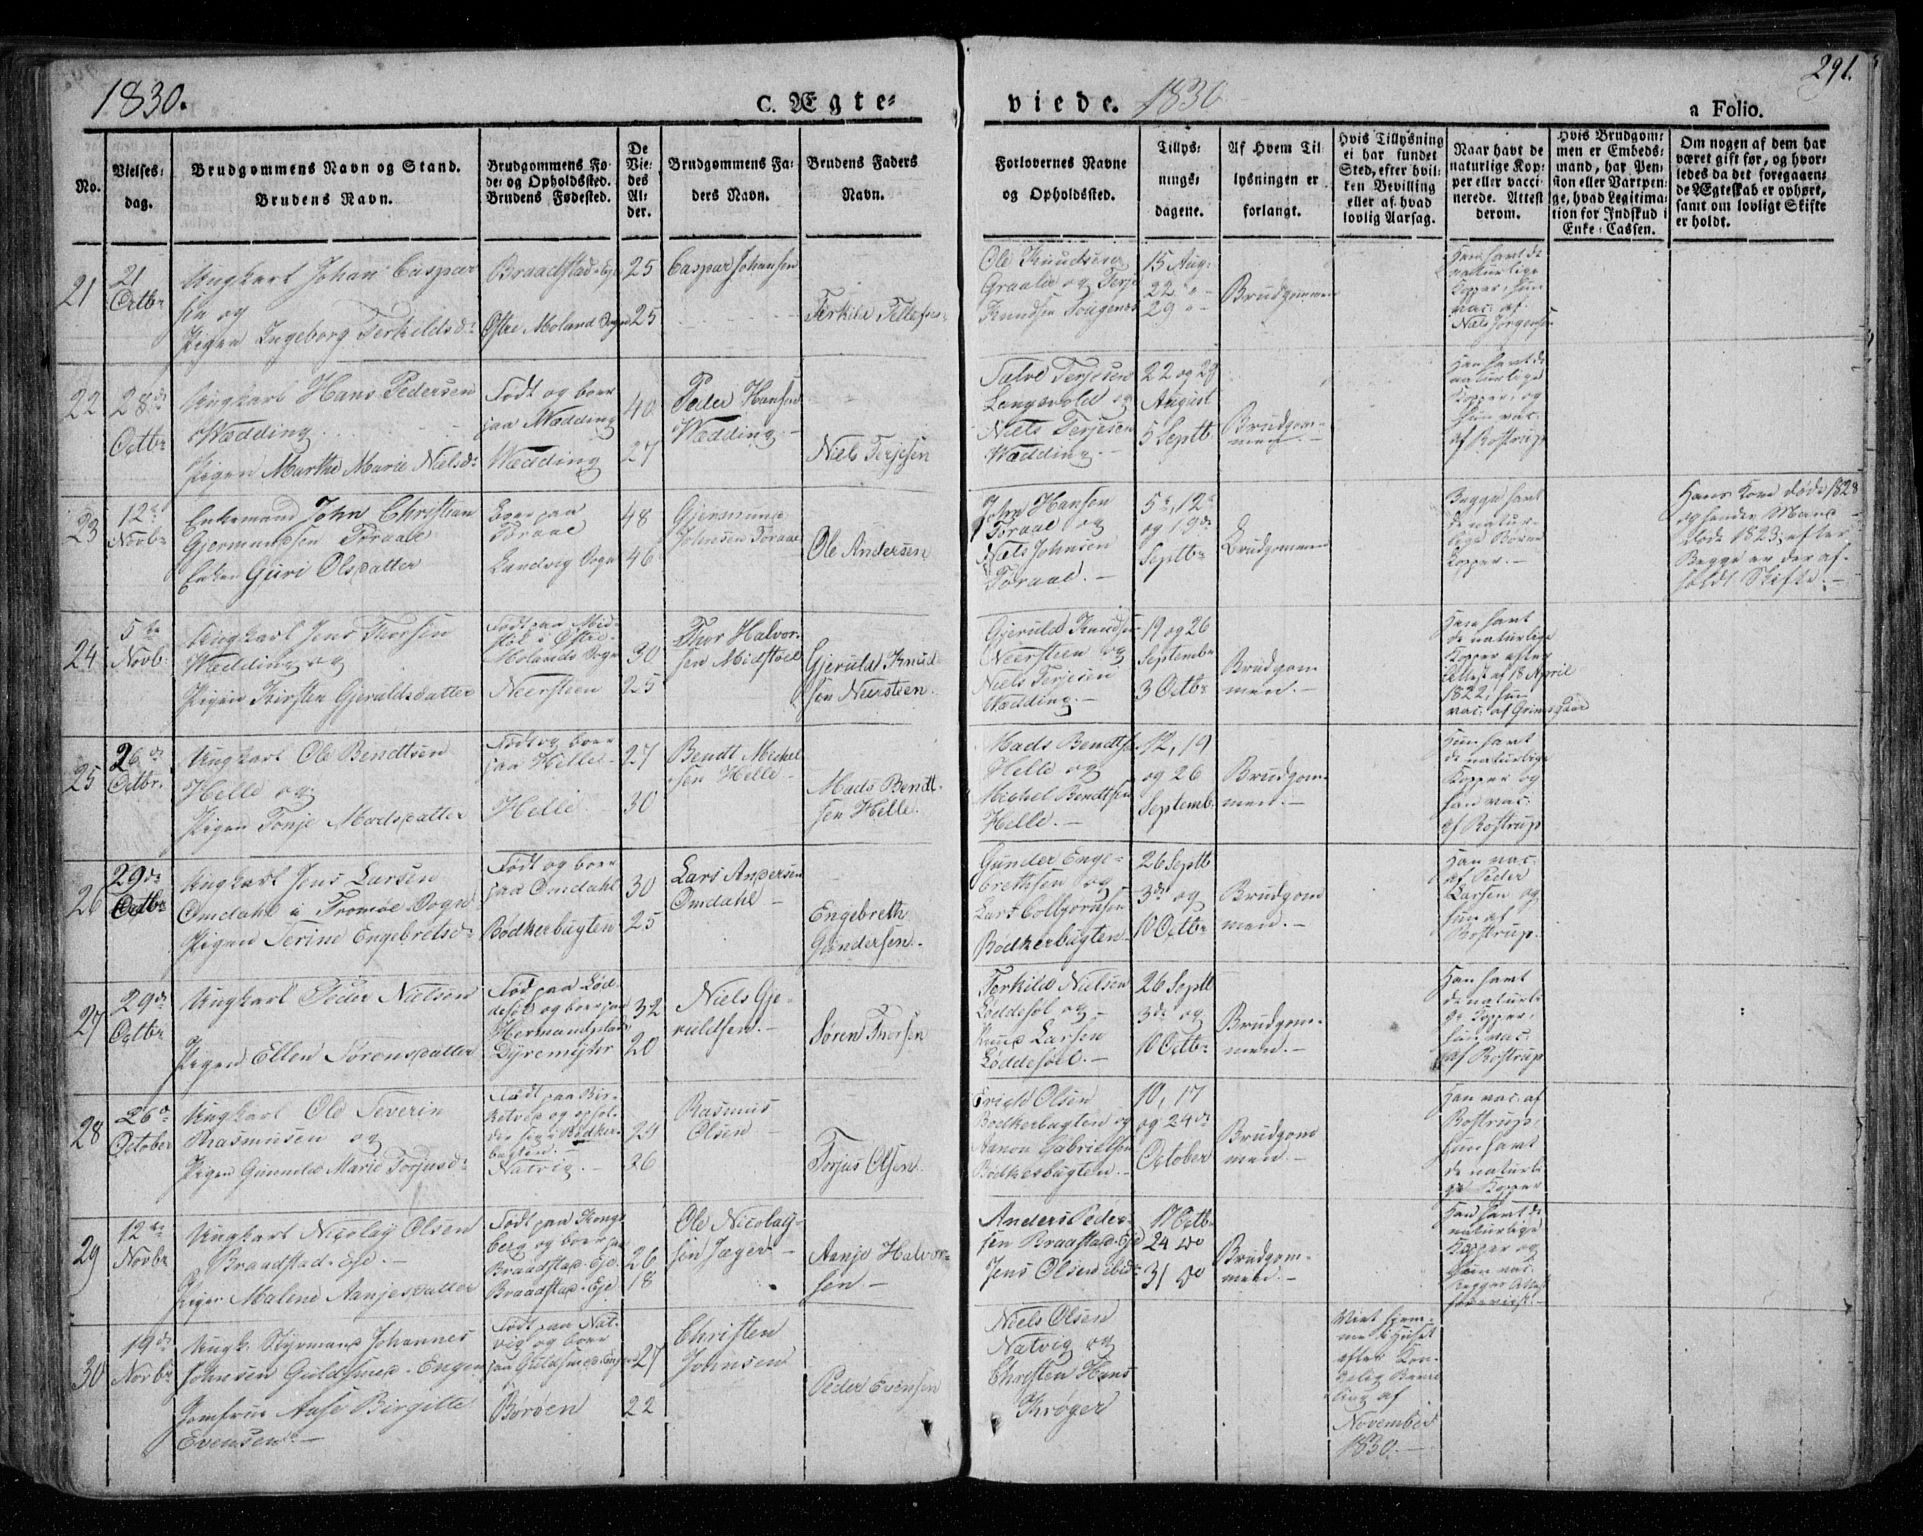 1830.
C. Ægte=
viede. 1830
291.
a Folio.
No.
Vielses=
dag.
Brudgommens Navn og Stand.
Brudens Navn.
Brudgommens Fø=
de= og Opholdssted.
Brudens Fødested.
De
Vie=
des
Al=
der.
Brudgommens Fa=
ders Navn.
Brudens Faders
Navn.
Forlovernes Navne
og Opholdssted.
Tillys=
nings=
dagene.
Af Hvem Til=
lysningen er
forlangt.
Hvis Tillysning
ei har fundet
Sted, efter hvil=
ken Bevilling
eller af hvad
lovlig Aarsag.
Naar havt de
naturlige Kop=
per eller vacci=
nerede. Attest
derom.
Hvis Brudgom=
men er Embeds=
mand, har Pen=
sion eller Vartpen=
ge, hvad Legitima=
tion for Indskud i
Enke=Cassen.
Om nogen af dem har
været gift før, og hvor=
ledes da det foregaaen=
de Ægteskab er ophørt,
samt om lovligt Skifte
er holdt.
21
21
Octbr
Ungkarl Johan Caspar
sen og
Pigen Ingeborg Terkildsd:
Braadstad=Eje
Østre Moland Sogn
25
25
Caspar Johansen
Terkild Tellefsen
Ole Knudsen
Graalie og Terje
Knudsen
15 Aug:
22 "
29 "
Brudgommen
Han havt de
naturlige
Kopper, hun
vac. af
Niels Jørgensen
22
28de
Octbr
Ungkarl Hans Pedersen
Wædding
Pigen Marthe Marie Nielsd:
Født og boer
paa Wædding
Wædding
40
27
Peder Hansen
Wædding
Niels Terjesen
Salve Terjesen
Langevold og
Niels Terjesen
Wædding.
22 og 29
August
5 Septbr
Brudgom=
men.
Han havt de
naturlige
Kopper, og
hun vac.
af Rostrup
23
12te
Novbr
Enkemand John Christian
Gjermundsen Toraae
Enken Guri Olsdatter
boer paa
Toraae
Landvig Sogn
48
46
Gjermund
Johnsen Toraae
Ole Andersen
John Hansen
Toraae og
Niels Johnsen
Toraae.
5te, 12te
og 19de
Septbr
Brudgommen
Begge havt
de natur=
lige Børne
Kopper.
Hans Kone døde 1828
og hendes Mand
døde 1823, efter
Begge er der af=
holdt Skifte.
24
5te
Novb.
Ungkarl Jens Thorsen
Wædding og
Pigen Kirsten Gjeruldsdatter
Født paa Mid=
støl i Østre
Molands Sogn
Neersteen
30
25
Thor Halvor=
sen Midstøel
Gjeruld Knud=
sen Neersteen.
Gjeruld Knudsen
Neersteen og
Niels Terjesen
Wædding.
19 og 26
Septembr
3 Octbr
Brudgom
men.
Han havt
de naturlige
Kopper efter
Attest af 18 April
1822, hun
vac. af Grimsgaard
25
26de
Octbr.
Ungkarl Ole Bendtsen
Helle og
Pigen Tonje Madsdatter
Født og boer
paa Helle
Helle
27
30
Bendt Michel
sen Helle
Mads Bendt=
sen Helle.
Mads Bendtsen
Helle og
Michel Bendtsen
Helle.
12, 19
og 26
Septemb.
Brudgom=
men.
Hun havt
de naturlige
Kopper og
han vac.
af Rostrup
26
29de
Octbr
Ungkarl Jens Larsen
Omdahl i Tromøe Sogn
Pigen Terine Engebretsd:
Født og boer
paa Omdahl
Bødkerbugten
30
25
Lars Andersen
Omdahl
Engebreth
Gundersen.
Gunder Enge=
brethsen og
Lars Colbjørnsen
Bødkerbugten
26 Septbr
3de og
10 Octbr
Brudgom
men.
Han vac.
af Peder
Larsen og
hun af
Rostrup.
27
29de
Octbr
Ungkarl Peder Nielsen
Pigen Ellen Sørensdatter
Fød paa Lød=
desøl og boer paa
Hermandsplads
Dyremyhr
32
20
Niels Gje=
ruldsen.
Søren Thorsen
Terkild Nielsen
Løddesøl og
Knud Larsen
Løddesøel.
26 Septbr
3de og
10 Octbr
Brudgom=
men.
Han havt
de naturli
ge Kopper,
hun vac.
af Rostrup
28
26de
October
Ungkarl Ole Severin
Rasmusen og
Pigen Gunnild Marie Torjusd:
Født paa Bir=
ketved og ophol=
der sig i Bødker=
bugten.
Natvig.
24
36
Rasmus
Olsen
Torjus Olsen
Olsen
Bødkerbugten og
Aanon Gabrielsen
Bødkerbugten.
10, 17
og 24de
October
Brudgom
men.
Han vac. af
Rostrup,
hun havt
de naturli
ge Kopper
29
12te
Novbr
Ungkarl Nicolay Olsen
Braadstad=Eje.
Pigen Malene Aanjesdatter
Født paa Kongs
berg og boer paa
Braadstad=Eje
Braadstad=Eje
26
18
Ole Nicolay=
sen Jæger
Aanje Halvor
sen
Anders Peder=
sen Braastad=Eje
Jens Olsen ibid:
17 Octb.
24 do
31 do
Brudgom=
men.
Han havt de
naturlige
Kopper og
hun vac.
Begges Attest
foreviist.
30
19de
Novbr
Ungk. Styrmand Johannes
Johnsen Guldsmed=Engen
Jomfrue Aase Birgitte
Evensen.
Født paa Nat
vig og boer
paa Guldsmed=Engen
Børøen
27
22
Christen
Johnsen
Peder Evensen
Niels Olsen
Natvig og
Christen Hans
Krøger
Viet hjem=
me i Huset
efter Kon=
gelig Bevil
ling af
November
1830.